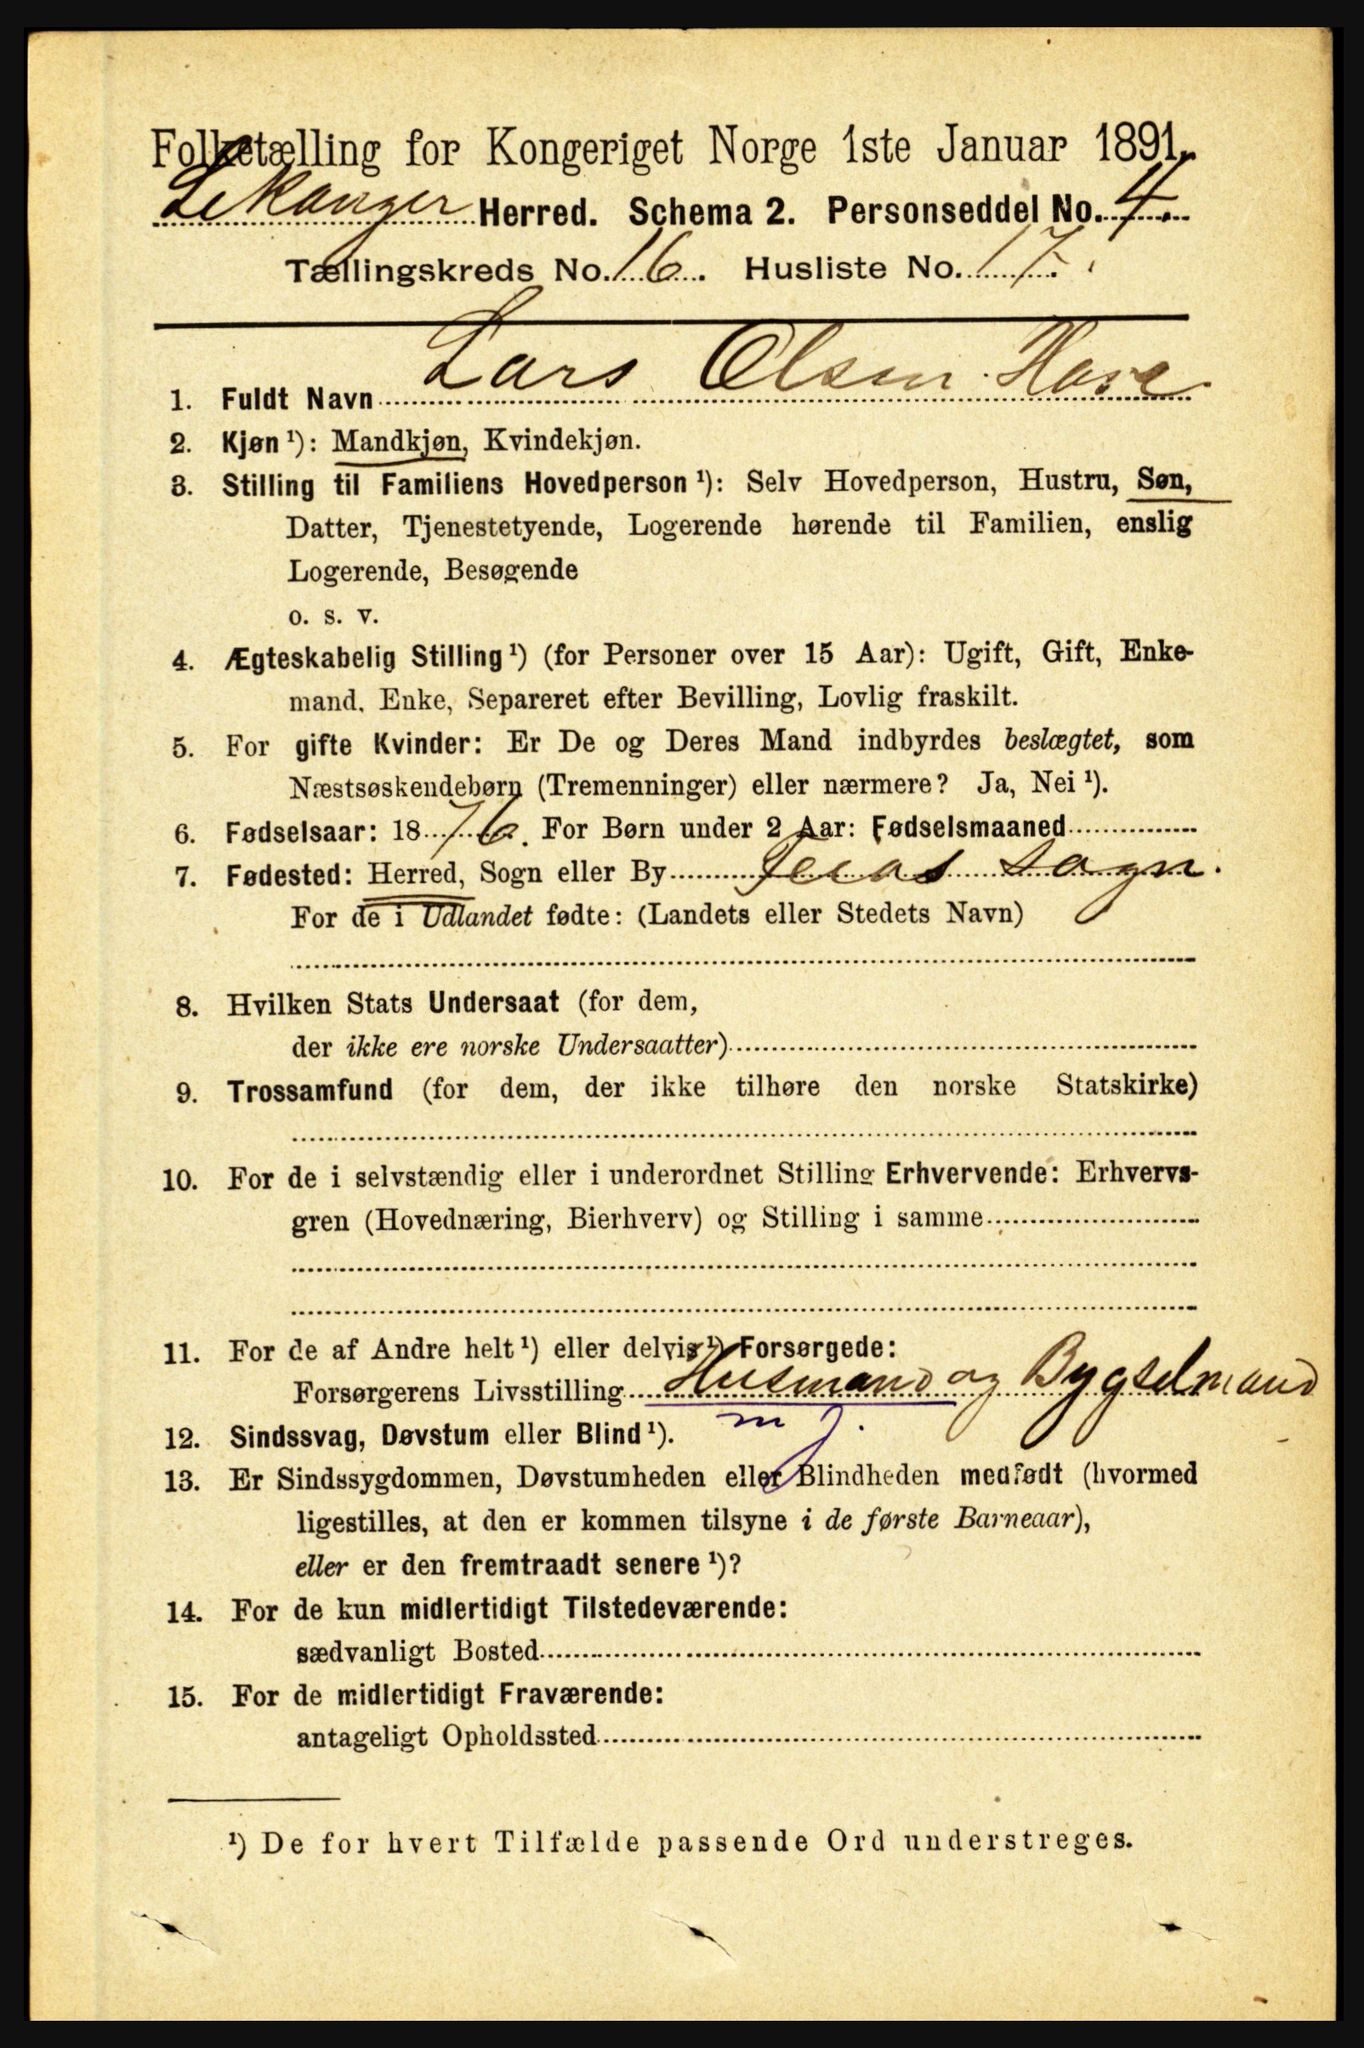 Folketælling for Kongeriget Norge 1ste Januar 1891.
Lekanger Herred. Schema 2. Personseddel No. 4.
Tællingskreds No. 16. Husliste No. 17.
1. Fuldt Navn Lars Olsen
2. Kjøn ¹): Mandkjøn, Kvindekjøn.
3. Stilling til Familiens Hovedperson ¹): Selv Hovedperson, Hustru, Søn,
Datter, Tjenestetyende, Logerende hørende til Familien, enslig
Logerende, Besøgende
o. s. v.
4. Ægteskabelig Stilling ¹) (for Personer over 15 Aar): Ugift, Gift, Enke-
mand, Enke, Separeret efter Bevilling, Lovlig fraskilt.
5. For gifte Kvinder: Er De og Deres Mand indbyrdes beslægtet, som
Næstsøskendebørn (Tremenninger) eller nærmere? Ja, Nei ¹).
6. Fødselsaar: 1876. For Børn under 2 Aar: Fødselsmaaned
7. Fødested: Herred, Sogn eller By Feios sogn.
For de i Udlandet fødte: (Landets eller Stedets Navn)
8. Hvilken Stats Undersaat (for dem,
der ikke ere norske Undersaatter)
9. Trossamfund (for dem, der ikke tilhøre den norske Statskirke)
10. For de i selvstændig eller i underordnet Stilling Erhvervende: Erhvervs-
gren (Hovednæring, Bierhverv) og Stilling i samme
11. For de af Andre helt ¹) eller delvis ¹) Forsørgede:
Forsørgerens Livsstilling Husmand og Bygselmand
m j.
12. Sindssvag, Døvstum eller Blind ¹).
13. Er Sindssygdommen, Døvstumheden eller Blindheden medfødt (hvormed
ligestilles, at den er kommen tilsyne i de første Barneaar),
eller er den fremtraadt senere ¹)?
14. For de kun midlertidigt Tilstedeværende:
sædvanligt Bosted
15. For de midlertidigt Fraværende:
antageligt Opholdssted
¹) De for hvert Tilfælde passende Ord understreges.